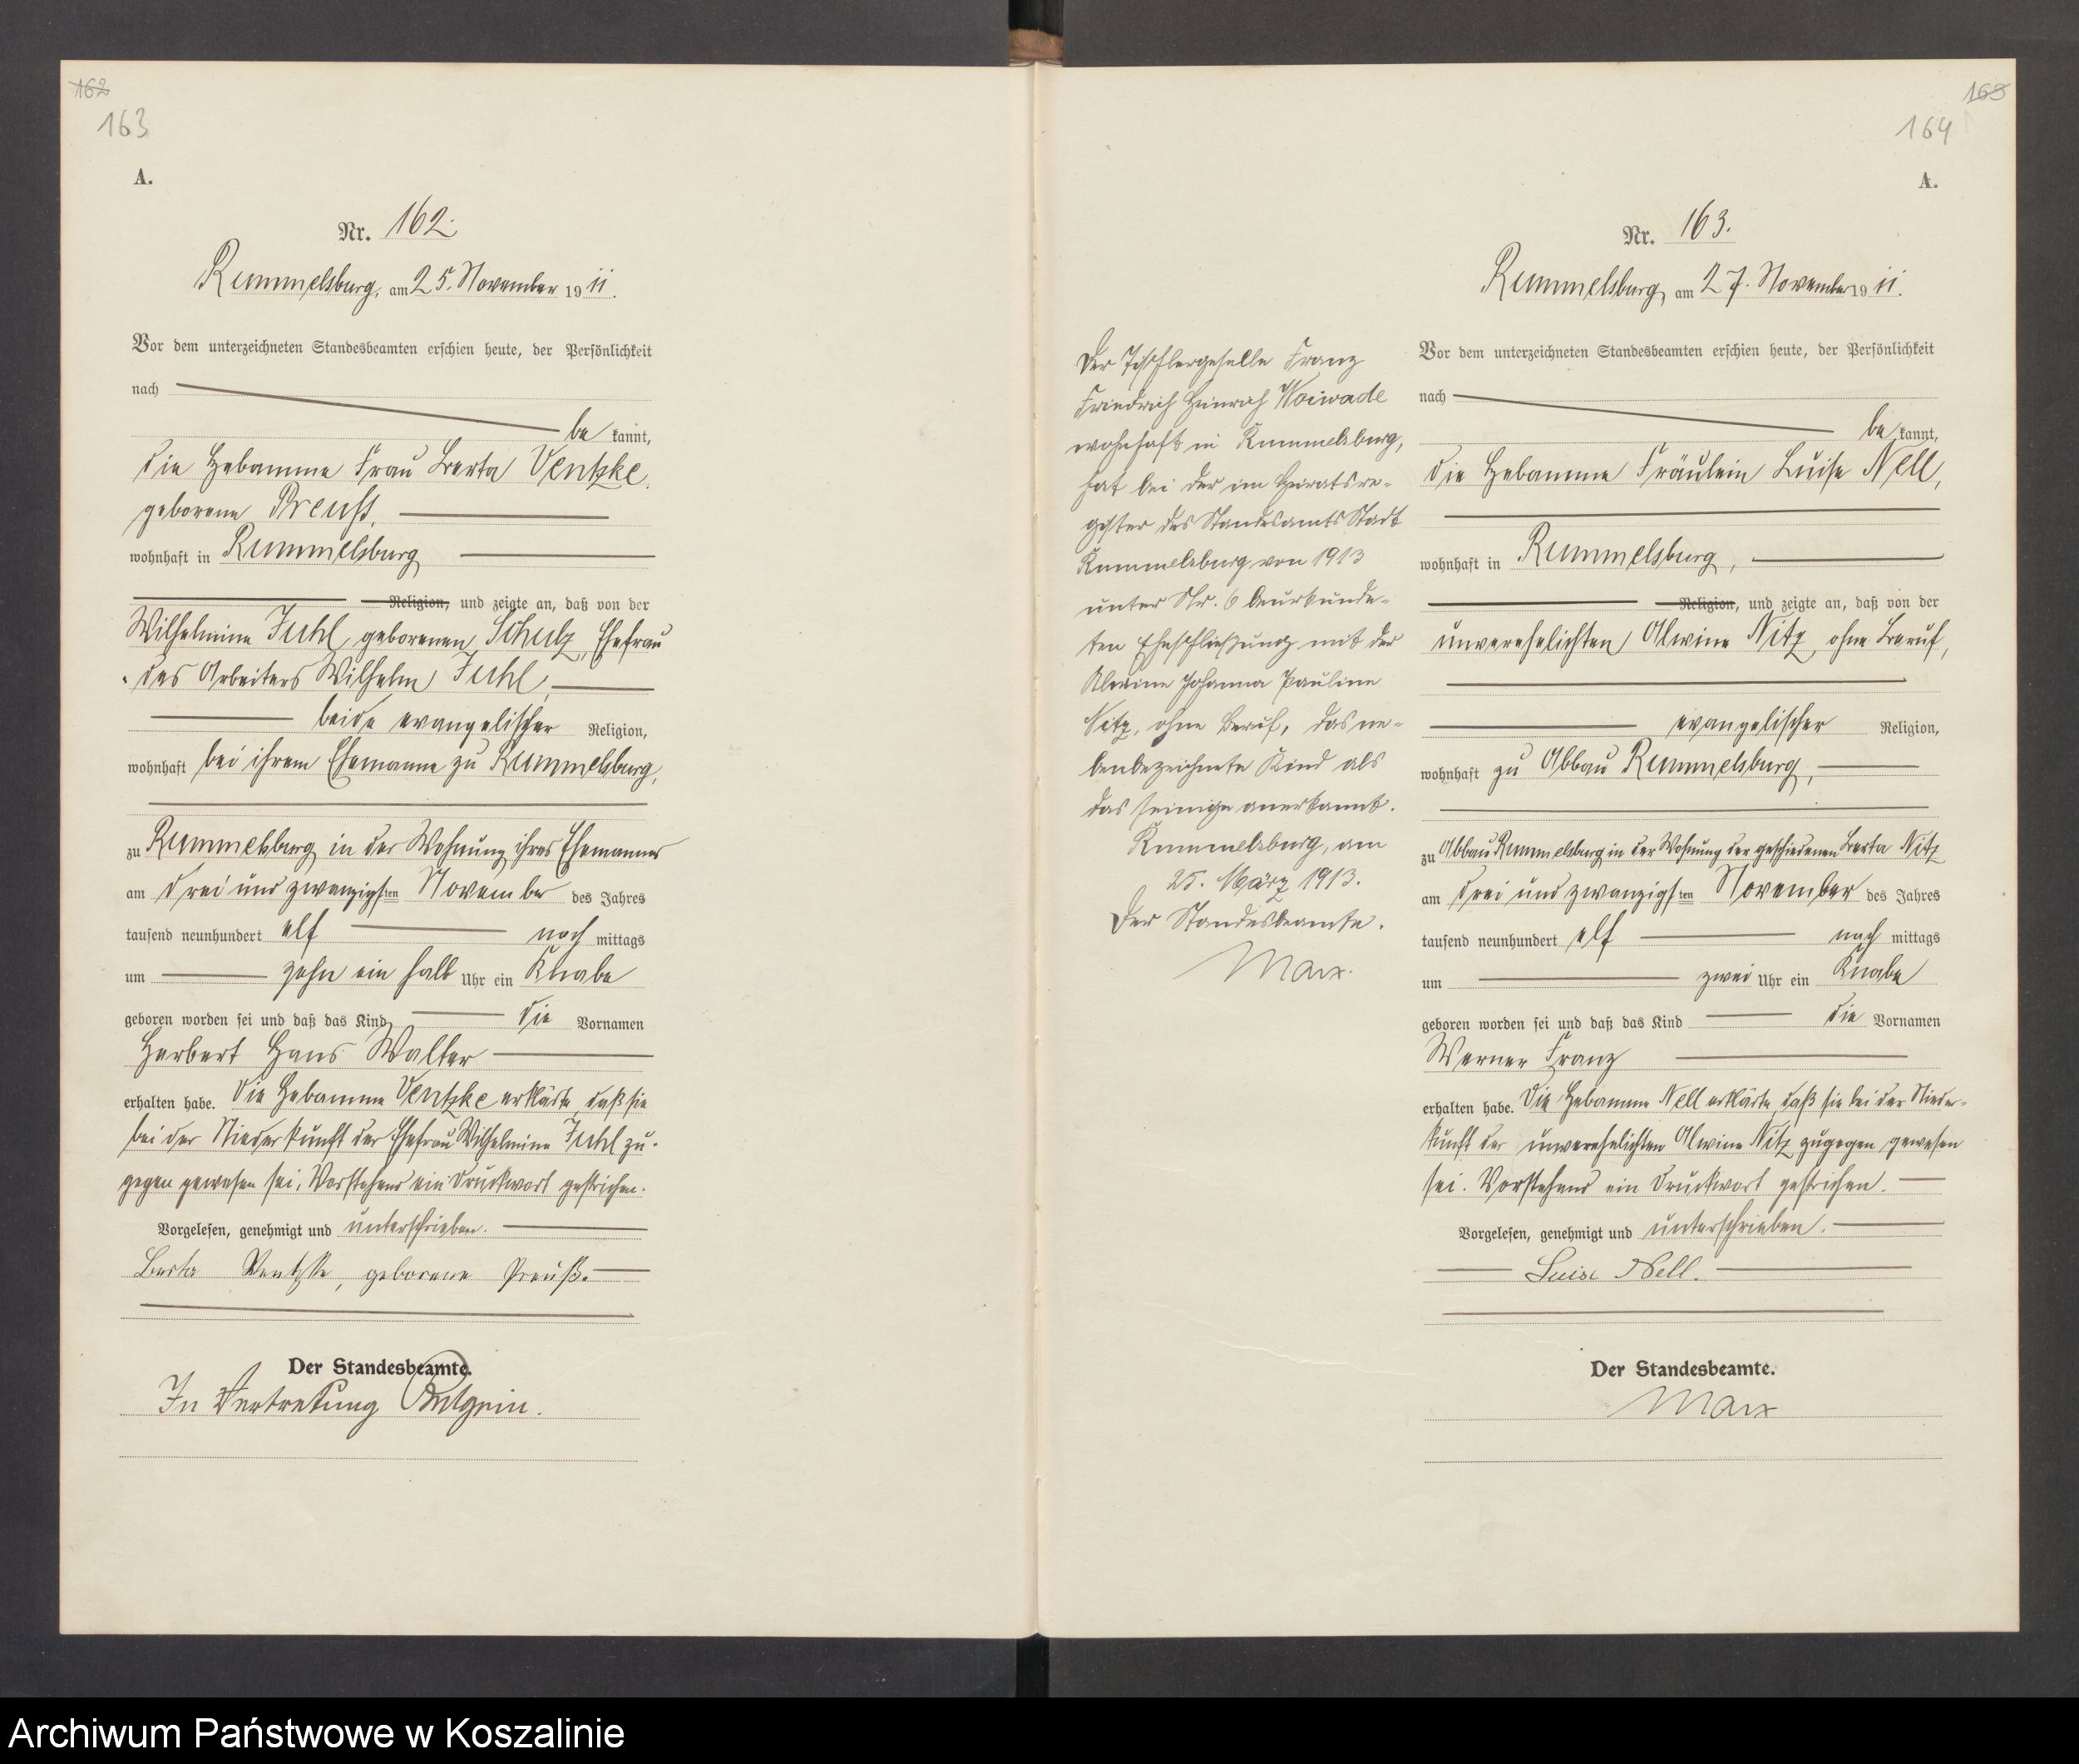 162
163
A.
Nr. 162.
Rummelsburg, am 25. November 1911.
Vor dem unterzeichneten Standesbeamten erschien heute, der Persönlichkeit
nach
be kannt,
die Hebamme Frau Berta Ventzke,
geborene Preuss,
wohnhaft in Rummelsburg
Religion, und zeigte an, daß von der
Wilhelmine Juhl, geborenen Schulz, Ehefrau
des Arbeiters Wilhelm Juhl,
beide evangelischer Religion,
wohnhaft bei ihrem Ehemanne zu Rummelsburg,
zu Rummelsburg in der Wohnung ihres Ehemannes
am drei und zwanzigsten November des Jahres
tausend neunhundert elf nach mittags
um zehn ein halb Uhr ein Knabe
geboren worden sei und daß das Kind die Vornamen
Herbert Hans Walter
erhalten habe. Die Hebamme Ventzke erklärte, daß sie
bei der Niederkunft der Ehefrau Wilhelmine Juhl zu-
gegen gewesen sei. Vorstehend ein Druckwort gestrichen.
Vorgelesen, genehmigt und unterschrieben.
Berta Ventzke, geborene Preuß.
Der Standesbeamte.
In Vertretung
163
164
A.
Nr. 163.
Rummelsburg, am 27. November 1911.
Der Tischlergeselle Franz
Friedrich Heinrich Woiwade
wohnhaft in Rummelsburg,
hat bei der im Heiratsre-
gister des Standesamts Stadt
Rummelsburg von 1913
unter Nr. 6 beurkunde-
ten Eheschließung mit der
Alwine Johanna Pauline
Nitz, ohne Beruf, das ne-
benbezeichnete Kind als
das seinige anerkannt.
Rummelsburg, am
25. März 1913.
Der Standesbeamte.
Marx.
Vor dem unterzeichneten Standesbeamten erschien heute, der Persönlichkeit
nach
be kannt,
die Hebamme Fräulein Luise Nell,
wohnhaft in Rummelsburg,
Religion, und zeigte an, daß von der
unverehelichten Alwine Nitz, ohne Beruf,
evangelischer Religion,
wohnhaft zu Abbau Rummelsburg,
zu Abbau Rummelsburg in der Wohnung der geschiedenen Berta Nitz
am drei und zwanzigsten November des Jahres
tausend neunhundert elf nach mittags
um zwei Uhr ein Knabe
geboren worden sei und daß das Kind die Vornamen
Werner Franz
erhalten habe. Die Hebamme Nell erklärte, daß sie bei der Nieder-
kunft der unverehelichten Alwine Nitz zugegen gewesen
sei. Vorstehend ein Druckwort gestrichen.
Vorgelesen, genehmigt und unterschrieben.
Luise Nell.
Der Standesbeamte.
Marx
Archiwum Państwowe w Koszalinie